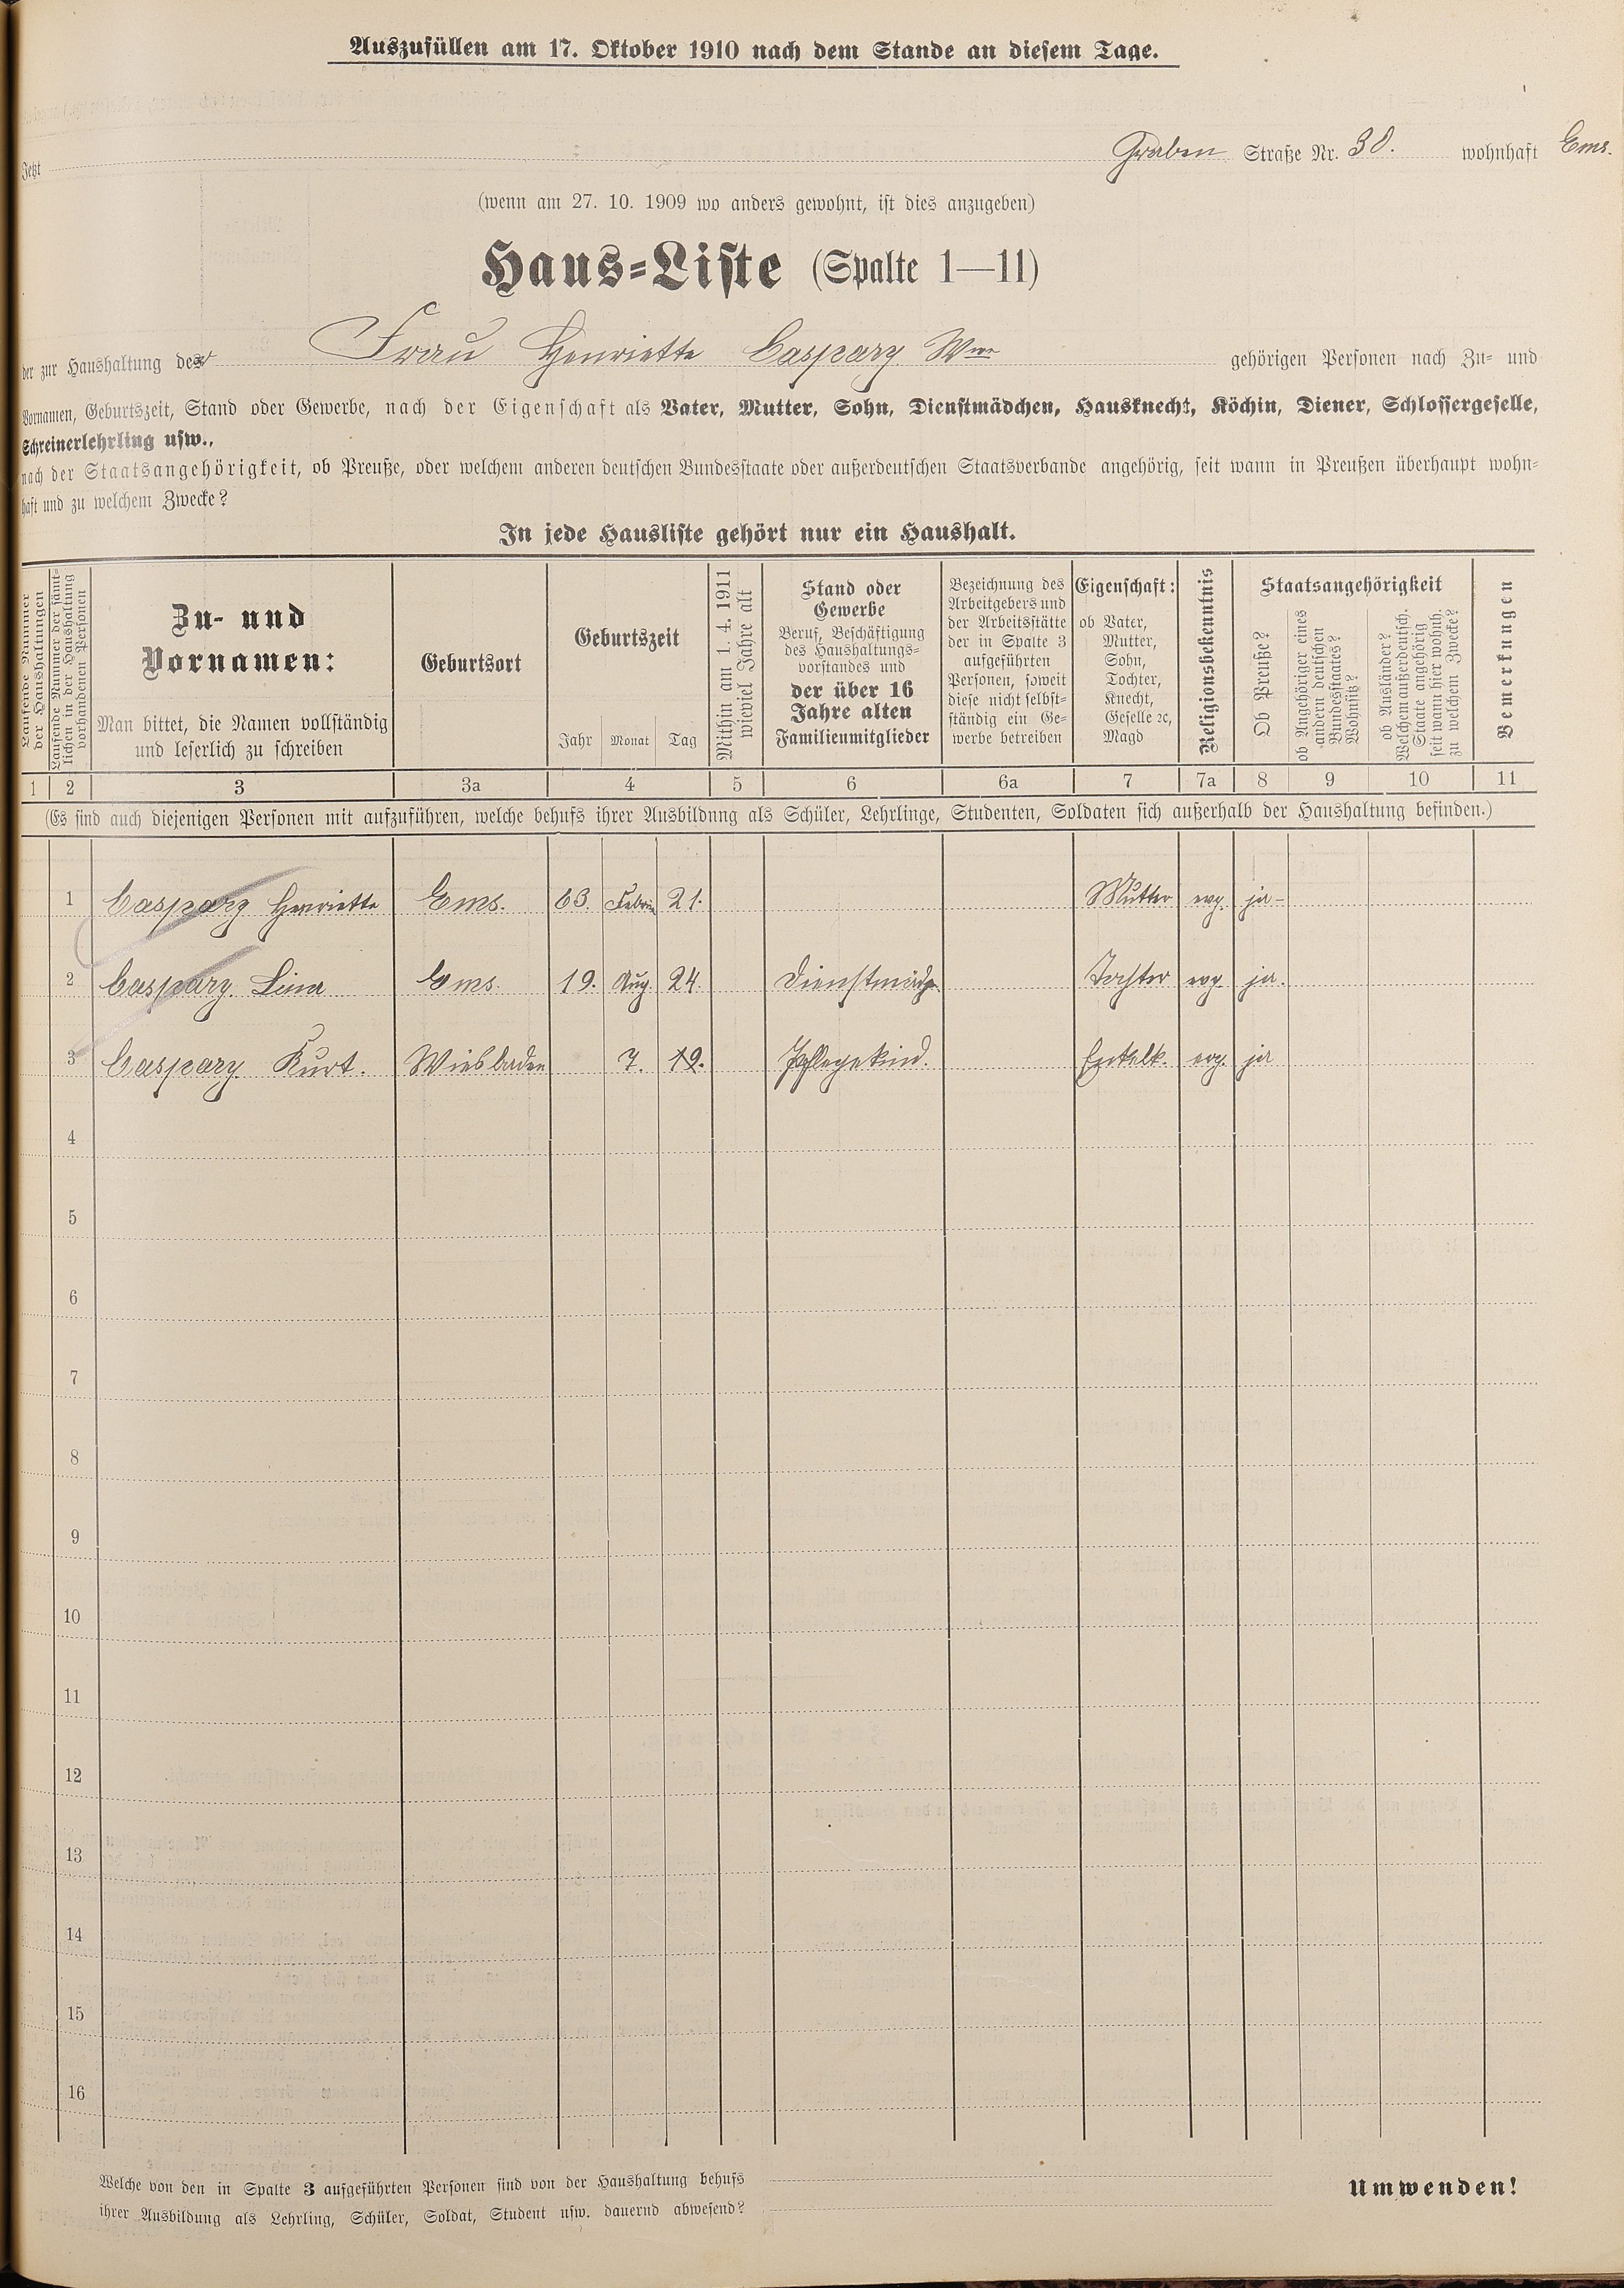 Auszufüllen am 17. Oktober 1910 nach dem Stande an diesem Tage.
Jetzt Graben Straße Nr. 30. wohnhaft Ems.
(wenn am 27. 10. 1909 wo anders gewohnt, ist dies anzugeben)
Haus-Liste (Spalte 1—11)
der zur Haushaltung der Frau Henriette Caspary Wwe gehörigen Personen nach Zu- und
Vornamen, Geburtszeit, Stand oder Gewerbe, nach der Eigenschaft als Vater, Mutter, Sohn, Dienstmädchen, Hausknecht, Köchin, Diener, Schlossergeselle,
Schreinerlehrling usw.,
nach der Staatsangehörigkeit, ob Preuße, oder welchem anderen deutschen Bundesstaate oder außerdeutschen Staatsverbande angehörig, seit wann in Preußen überhaupt wohn-
haft und zu welchem Zwecke?
In jede Hausliste gehört nur ein Haushalt.
Laufende Nummer
der Haushaltungen
Laufende Nummer der sämt-
lichen in der Haushaltung
vorhandenen Personen
Zu- und
Vornamen:
Man bittet, die Namen vollständig
und leserlich zu schreiben
Geburtsort
Geburtszeit
Jahr Monat Tag
Mithin am 1. 4. 1911
wieviel Jahre alt
Stand oder
Gewerbe
Beruf, Beschäftigung
des Haushaltungs-
vorstandes und
der über 16
Jahre alten
Familienmitglieder
Bezeichnung des
Arbeitgebers und
der Arbeitsstätte
der in Spalte 3
aufgeführten
Personen, soweit
diese nicht selbst-
ständig ein Ge-
werbe betreiben
Eigenschaft:
ob Vater,
Mutter,
Sohn,
Tochter,
Knecht,
Geselle ꝛc,
Magd
Religionsbekenntnis
Staatsangehörigkeit
Ob Preuße?
ob Angehöriger eines
andern deutschen
Bundesstaates?
Wohnsitz?
ob Ausländer?
Welchem außerdeutsch.
Staate angehörig
seit wann hier wohnh.
zu welchem Zwecke?
Bemerkungen
1 2 3 3a 4 5 6 6a 7 7a 8 9 10 11
(Es sind auch diejenigen Personen mit aufzuführen, welche behufs ihrer Ausbildnng als Schüler, Lehrlinge, Studenten, Soldaten sich außerhalb der Haushaltung befinden.)
1 Caspary Henriette Ems. 63. 21. Mutter evg. ja-
2 Caspary. Lina Ems. 19. Aug. 24. Tochter evg. ja.
3 Caspary. Kurt. Wiesbaden 7. 19. Pflegekind. evg. ja
4
5
6
7
8
9
10
11
12
13
14
15
16
Welche von den in Spalte 3 aufgeführten Personen sind von der Haushaltung behufs
ihrer Ausbildung als Lehrling, Schüler, Soldat, Student usw. dauernd abwesend?
Umwenden!